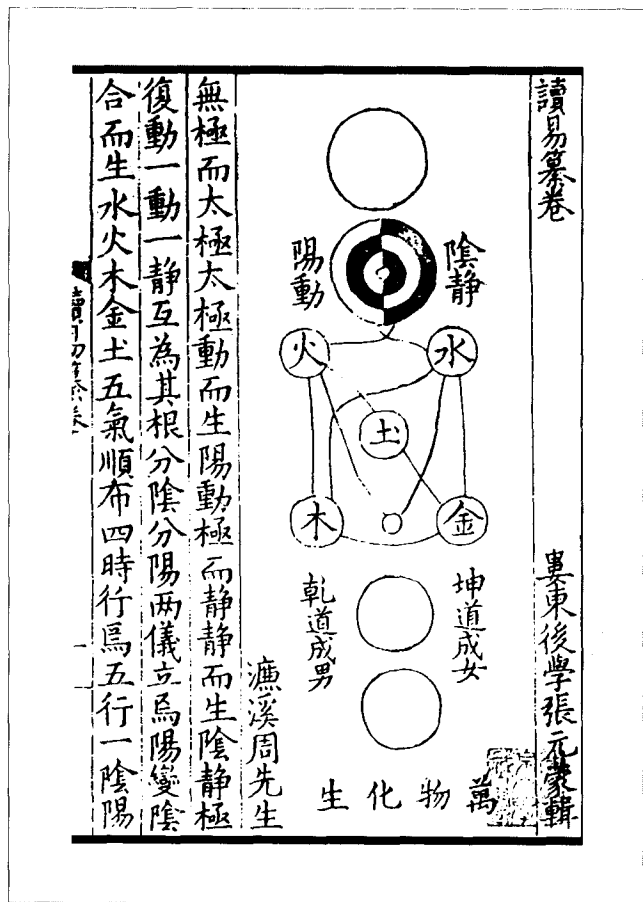 讀易纂卷
婁東後學張元蒙輯
陰靜
陽動
水
火
土
金
木
坤道成女
乾道成男
萬物化生
濂溪周先生
無極而太極太極動而生陽動極而静静而生陰静極
復動一動一静互為其根分陰分陽两儀立焉陽變陰
合而生水火木金土五氣順布四時行焉五行一陰陽